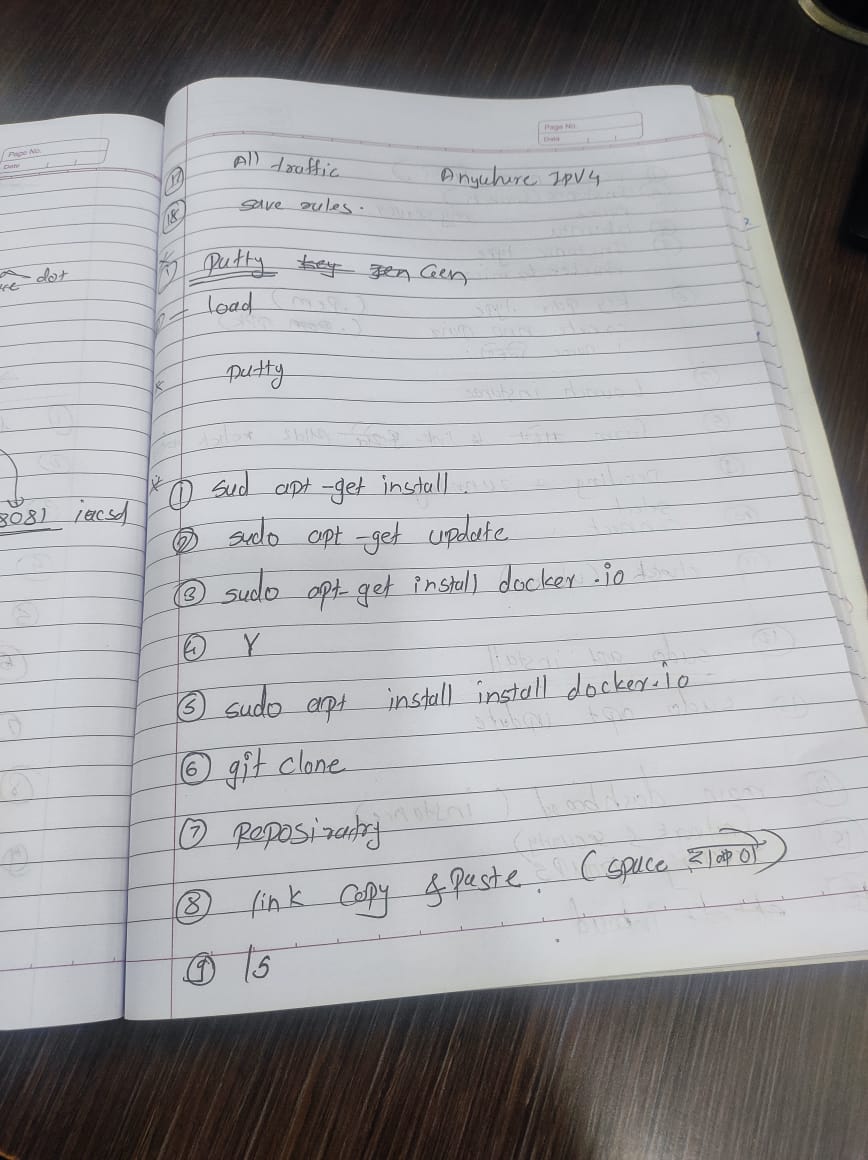 Page No.
Date
dot
8081 iacsd
Page No.
Date
17 All traffic Anywhere IPV4
18 save rules.
1) Putty key gen Gen
- load
* Putty
* 1 sud apt-get install.
2 sudo apt-get update
3 sudo apt-get install docker.io
4 Y
5 sudo apt install install docker.io
6 git clone
7 Reposiratry
8 link copy & Paste. (space टाकणे)
9 ls